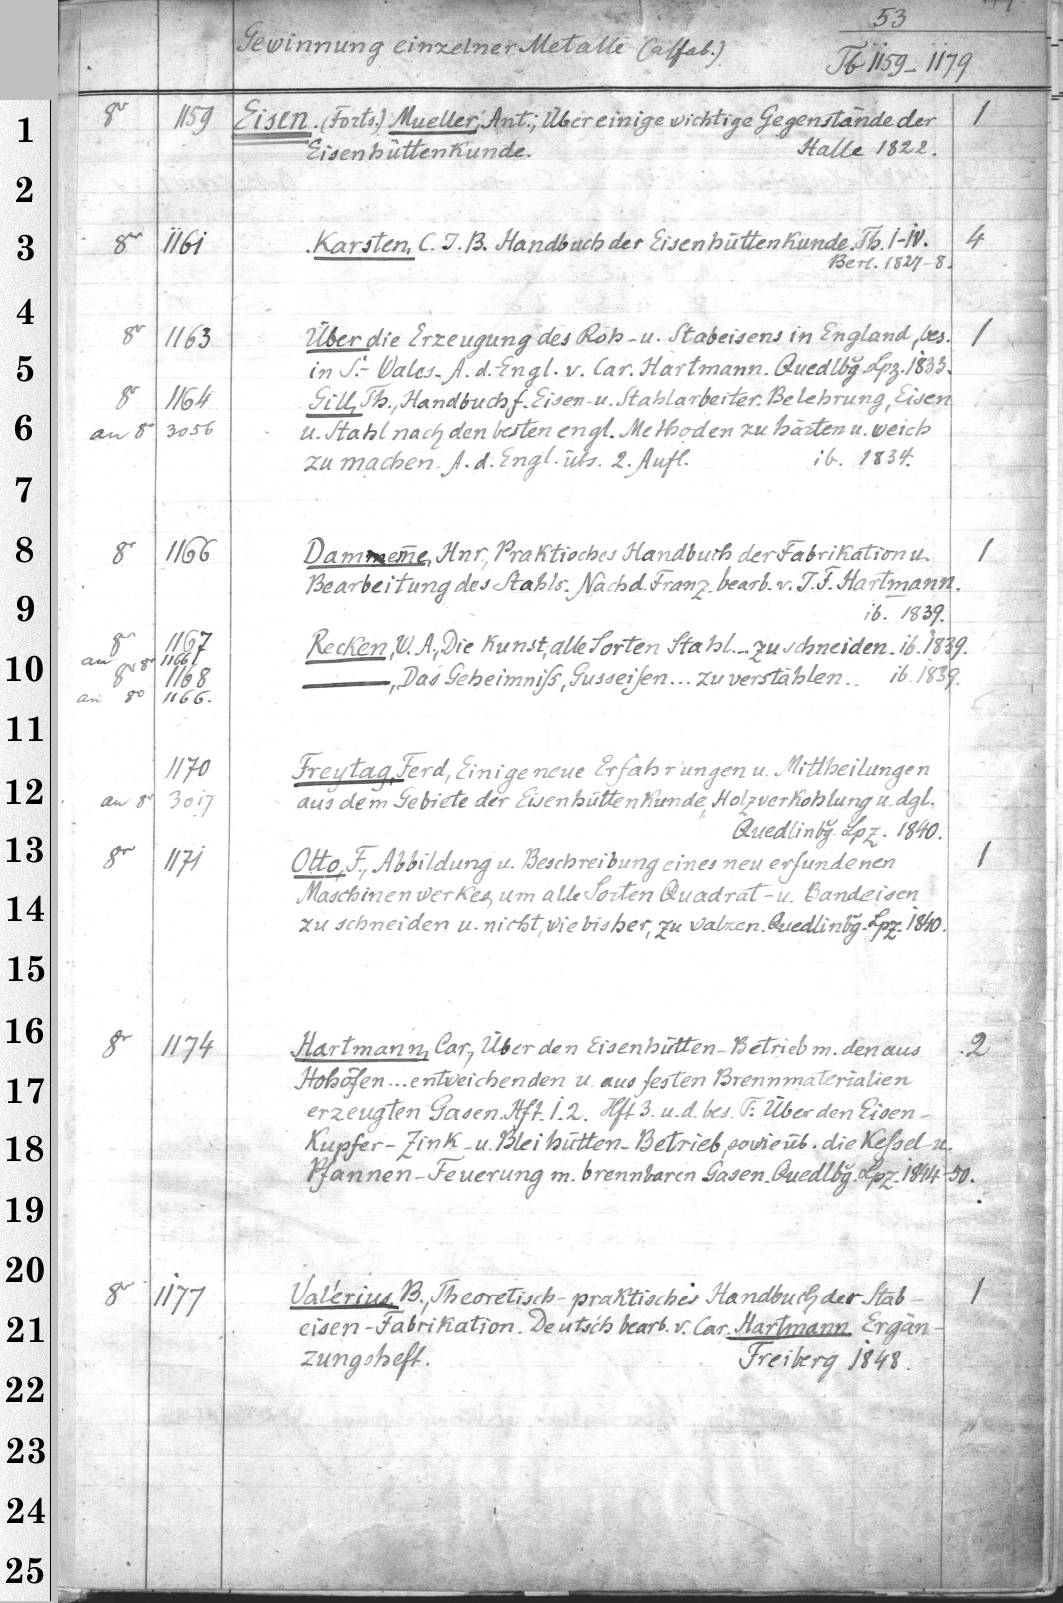 53
Gewinnung einzelner Metalle (alfab.)
Tb 1159–1179
1 8° 1159 Eisen. (Forts.) Mueller, Ant.; Über einige wichtige Gegenstände der 1
Eisenhüttenkunde. Halle 1822.
2
3 8° 1161 Karsten, C. J. B. Handbuch der Eisenhüttenkunde. Th. I–IV. 4
Berl. 1827–8.
4
8° 1163 Über die Erzeugung des Roh- u. Stabeisens in England, bes. 1
5 in S.- Wales. A. d. Engl. v. Car. Hartmann. Quedlbg. Lpz. 1833.
8° 1164 Gill, Th., Handbuch f. Eisen- u. Stahlarbeiter. Belehrung, Eisen
6 an 8° 3056 u. Stahl nach den besten engl. Methoden zu härten u. weich
zu machen. A. d. Engl. üb̈s. 2. Aufl. ib. 1834.
7
8 8° 1166 Damm̄eme, Hnr., Praktisches Handbuch der Fabrikation u. 1
Bearbeitung des Stahls. Nach d. Franz. bearb. v. J. F. Hartmann.
9 ib. 1839.
8° 1167 Recken, W. A., Die Kunst, alle Sorten Stahl... zu schneiden. ib. 1839.
an 8° 1166
10 8° 1168 ———, Das Geheimniſs, Gusseiſen... zu verstählen.. ib. 1839.
an 8° 1166.
11
1170 Freytag, Ferd., Einige neue Erfahrungen u. Mittheilungen
12 an 8° 3017 aus dem Gebiete der Eisenhüttenkunde, Holzverkohlung u. dgl.
Quedlinbg. Lpz. 1840.
13 8° 1171 Otto, F., Abbildung u. Beschreibung eines neu erfundenen 1
14 Maschinenwerkes, um alle Sorten Quadrat- u. Bandeisen
zu schneiden u. nicht, wie bisher, zu walzen. Quedlinbg. Lpz. 1840.
15
16 8° 1174 Hartmann, Car., Über den Eisenhütten-Betrieb m. den aus 2
17 Hohöfen... entweichenden u. aus festen Brennmaterialien
erzeugten Gasen. Hft. 1. 2. Hft 3. u. d. bes. T.: Über den Eisen-
18 Kupfer- Zink- u. Bleihütten-Betrieb, sowie üb. die Keſsel- u.
Pfannen-Feuerung m. brennbaren Gasen. Quedlbg. Lpz. 1844–50.
19
20
8° 1177 Valérius, B., Theoretisch-praktisches Handbuch der Stab- 1
21 eisen-Fabrikation. Deutsch bearb. v. Car. Hartmann. Ergän-
zungsheft. Freiberg 1848.
22
23
24
25